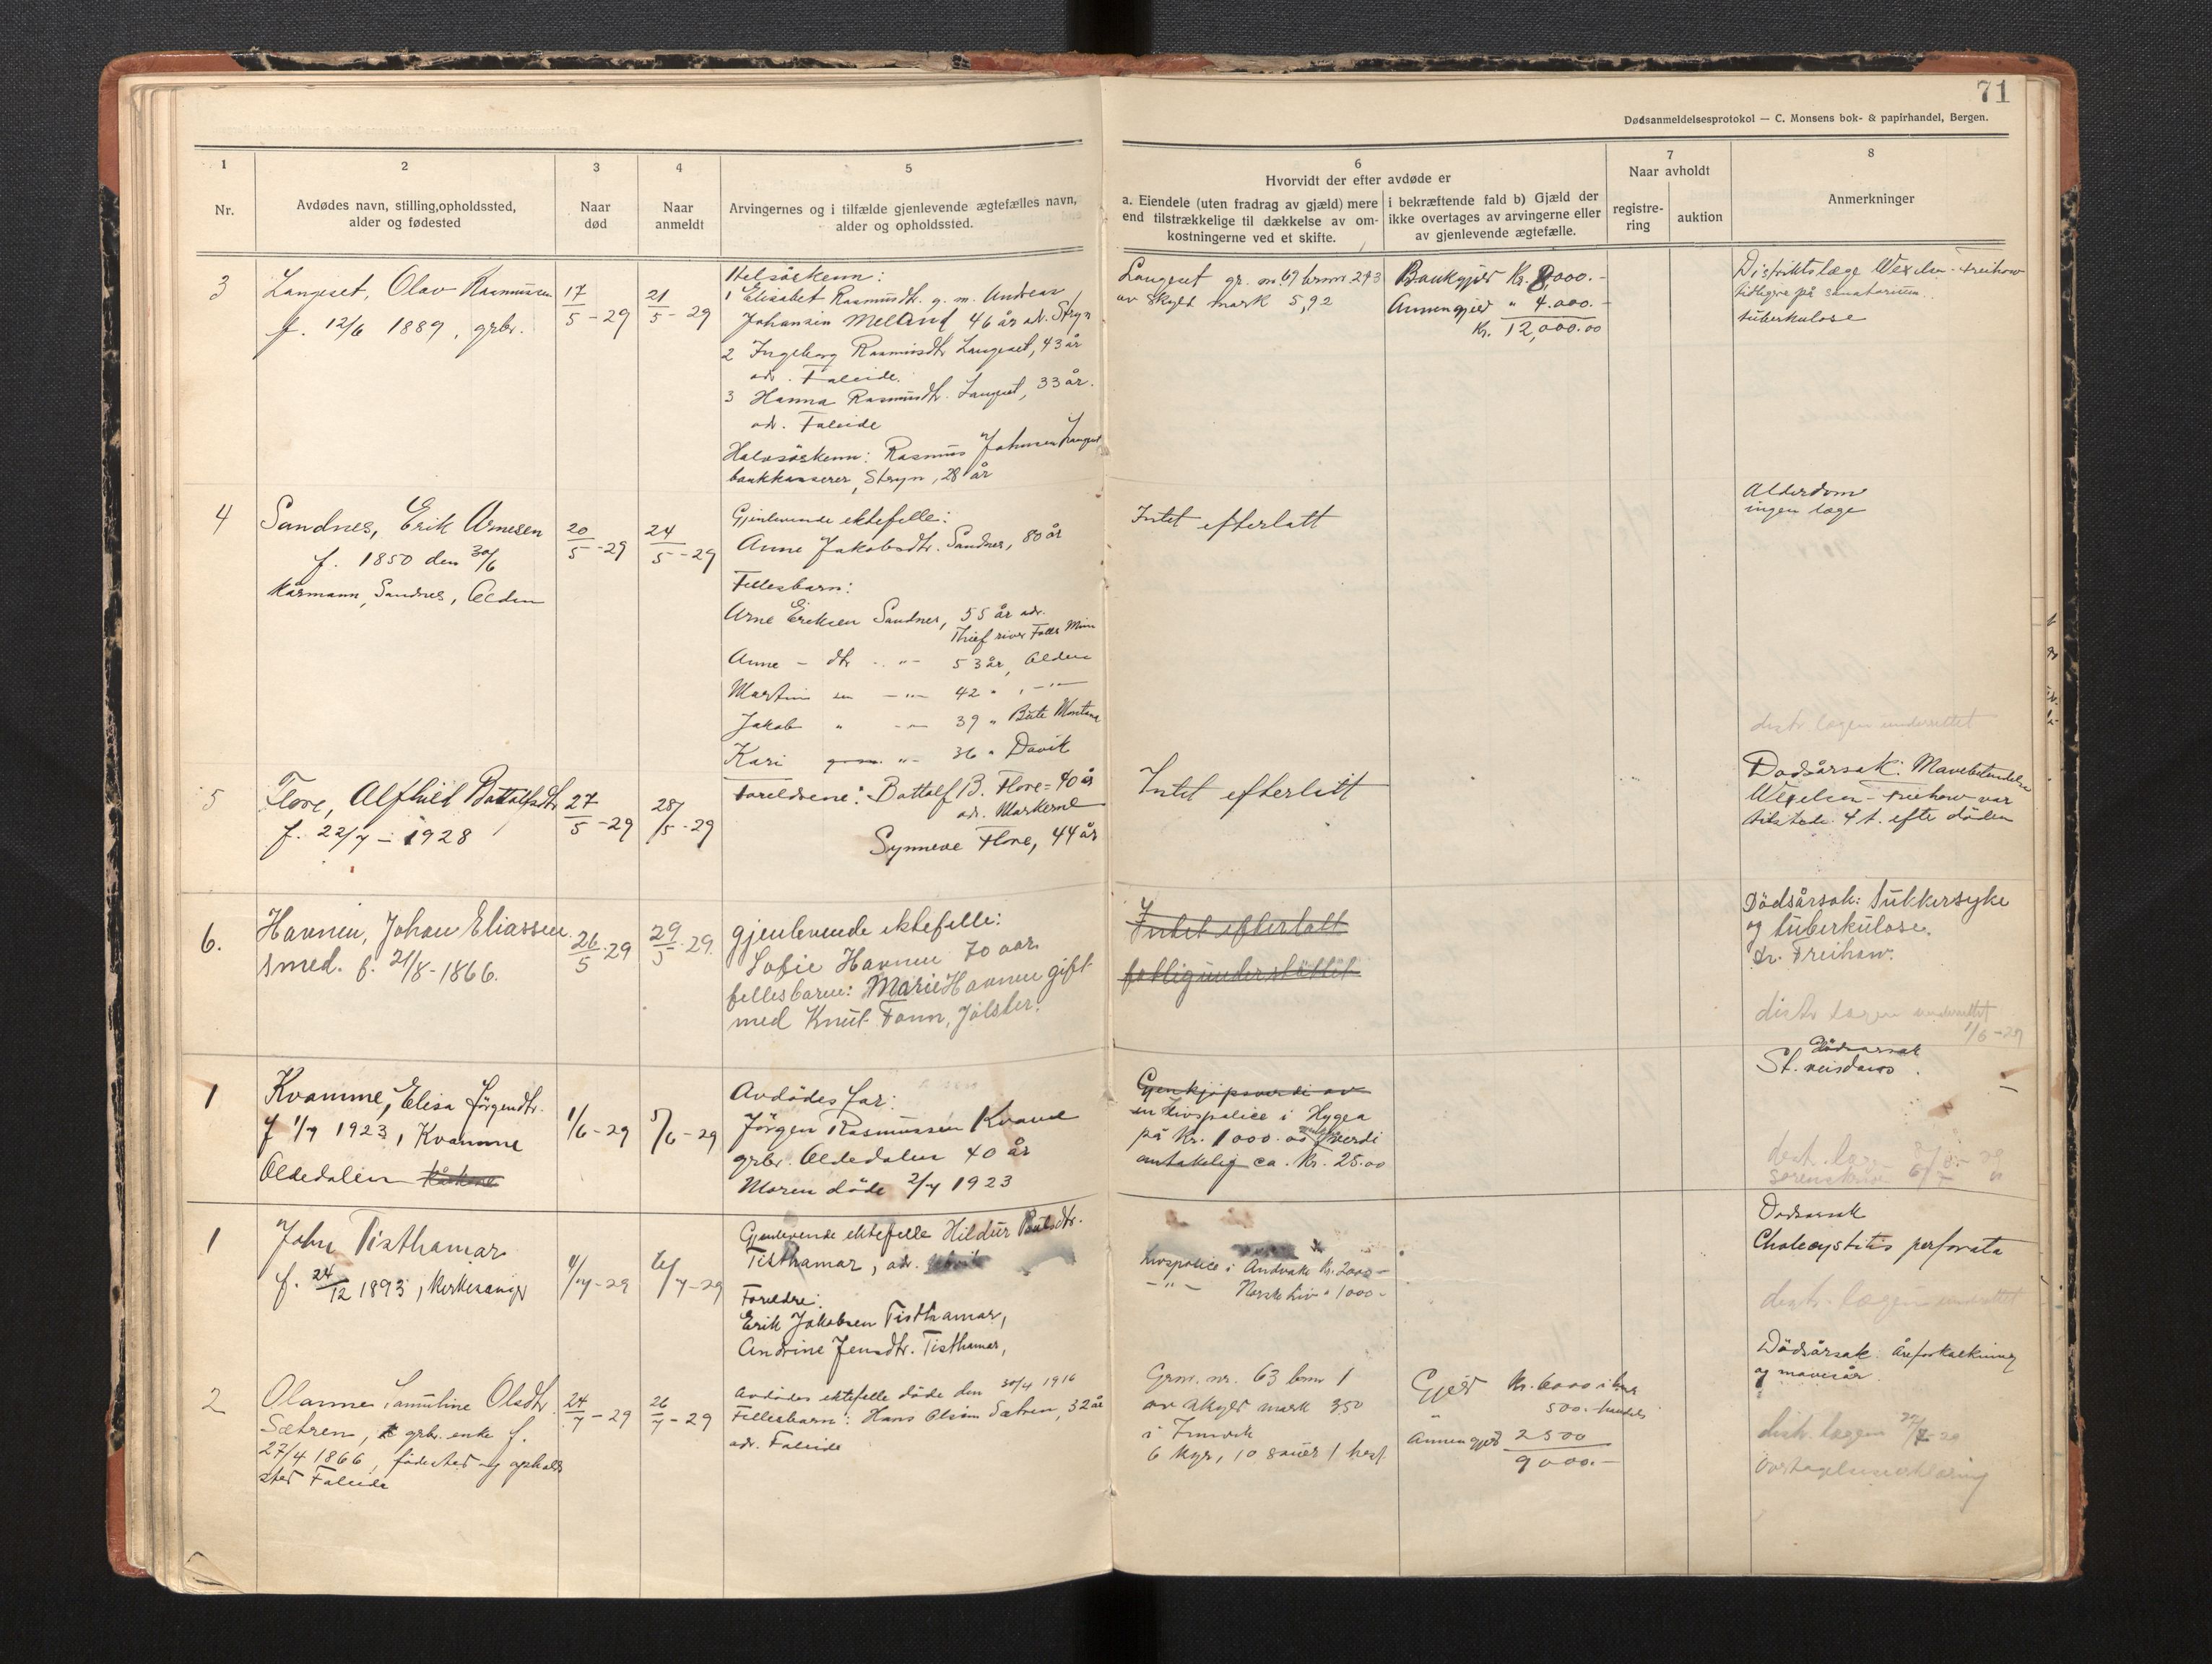 71
Dødsanmeldelsesprotokol — C. Monsens bok- & papirhandel, Bergen.
1
2
3
4
5
6
7
8
Nr.
Avdødes navn, stilling, opholdssted,
alder og fødested
Naar
død
Naar
anmeldt
Arvingernes og i tilfælde gjenlevende ægtefælles navn,
alder og opholdssted.
Hvorvidt der efter avdøde er
a. Eiendele (uten fradrag av gjæld) mere
end tilstrækkelige til dækkelse av om-
kostningerne ved et skifte.
i bekræftende fald b) Gjæld der
ikke overtages av arvingerne eller
av gjenlevende ægtefælle.
Naar avholdt
registre-
ring
auktion
Anmerkninger
3
Langeset, Olav Rasmussen
f. 12/6 1889, grbr.
17/5 - 29
21/5 - 29
Helsøsken:
1 Elisabet Rasmusdtr. g. m. Andreas
Johansen Meland, 46 år adr. Stryn
2 Ingeborg Rasmusdtr Langeset, 43 år
adr. Faleide.
3 Hanna Rasmusdtr. Langeset, 33 år.
adr. Faleide
Halvsøsken: Rasmus Johnsen Langeset
bankkasserer, Stryn, 28 år
Langeset gr. nr. 69 brnr 293
av skyld mark 5,92
Bankgjeld Kr. 8,000.-
Annen gjeld " 4.000.-
Kr. 12,000.00
Distriktslæge Wexelsen-Freihow
tidligere på sanatorium.
tuberkulose
4
Sandnes, Erik Arnesen
f. 1850 den 30/6
Kårmann, Sandnes, Olden
20/5 - 29
24/5 - 29
Gjenlevende ektefelle:
Anne Jakobsdtr. Sandnes, 80 år
Fellesbarn:
Arne Eriksen Sandnes, 55 år adr.
Thief river Falls Minn
Anne - dtr - " - 53 år, Olden
Martin sen - " - 42 " , - " -
Jakob " - " - 39 " Bute Montana
Kari - " - 36 " Davik
Intet efterlatt
Alderdom
ingen læge
distr. lægen underrettet
5
Flore, Alfhild Bottolfsdtr
f. 22/7 - 1928
27/5 - 29
28/5 - 29
Foreldrene: Bottolf B. Flore - 40 år
adr. Markene
Synneve Flore, 44 år
Intet efterlatt
Dødsårsak: Mavebetendelse
Wexelsen-Freihow var
tilstede 4 t. efter døden
6.
Havnen, Johan Eliassen
smed. f. 21/8 - 1866.
26/5 - 29
29/5 - 29.
gjenlevende ektefelle:
Sofie Havnen 70 aar.
fellesbarn: Marie Havnen gift
med Knut Fonn, Jølster.
Intet efterlatt
fattigunderstøttet
Dödsårsak: Sukkersyke
og tuberkulose.
dr. Freihow.
distr lægen underrettet
1/6 - 29
1
Kvamme, Elisa Jørgendtr.
f 1/7 1923, Kvamme
Oldedalen
1/6 - 29
5/6 - 29
Avdødes far:
Jørgen Rasmussen Kvame
grbr. Oldedalen 40 år
Moren døde 2/7 1923
Gjenkjøpsverdi av
en livspolice i Hygea
på Kr. 1000.00 verdi
antakelig ca. Kr. 25.00
Dødsarsak
St. veisdans.
distr. læg
Sorenskriv
1
John Tisthamar
f. 24/12 1893, Kirkesanger
1/7 - 29
6/7 - 29
Gjenlevende ektefelle Hildur Paulsdtr.
Tisthamar, adr.
Foreldre:
Erik Jakobsen Tisthamar,
Andrine Jensdtr. Tisthamar,
Livspolice i Andvake Kr. 2000 -
- " - Norsk Liv " 1000 -
Dødsarsak
Cholecystitis perforata
distr. lægen underrettet
2
Olamne, Samuline Olsdtr.
Sætren, grbr. enke f.
27/4 1866, fødested og opholds
sted Faleide
24/7 - 29
26/7 - 29
Avdødes ektefelle døde den 30/4 1916
Fellesbarn: Hans Olsen Sætren, 32 år
adr. Faleide
Grnr. nr. 63 brnr 1
av skyld mark 3,50
i Innvik
6 kyr, 10 sauer 1 hest.
Gjeld Kr. 6000 i
500.-
Annen gjeld 2500
9000.-
Dödsårsak: Åreforkalkning
og mavesår.
distr. lægen
overtagelseserklæring